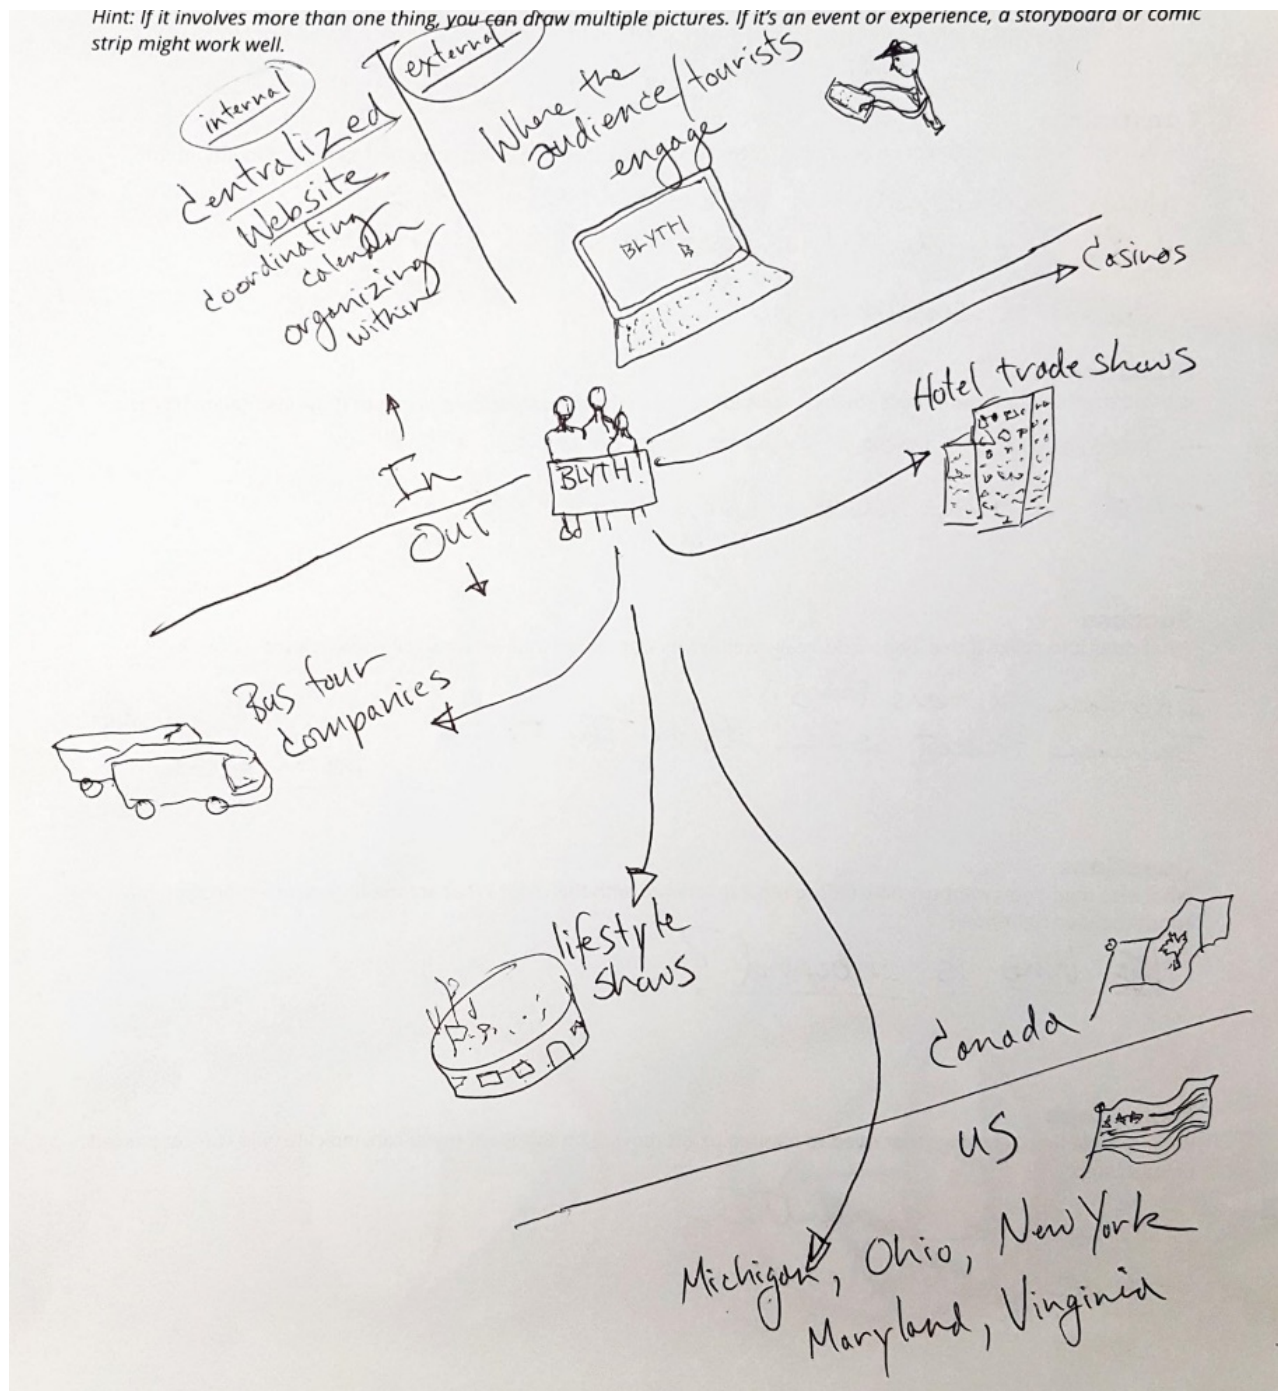 Hint: If it involves more than one thing, you can draw multiple pictures. If it's an event or experience, a storyboard or comic
strip might work well.
internal
Centralized
Website
coordinating
calendar
organizing
within
external
Where the
audience/tourists
engage
BLYTH
Casinos
Hotel trade shows
In
OUT
BLYTH!
Bus tour
companies
lifestyle
shows
Canada
US
Michigan, Ohio, New York
Maryland, Vinginia